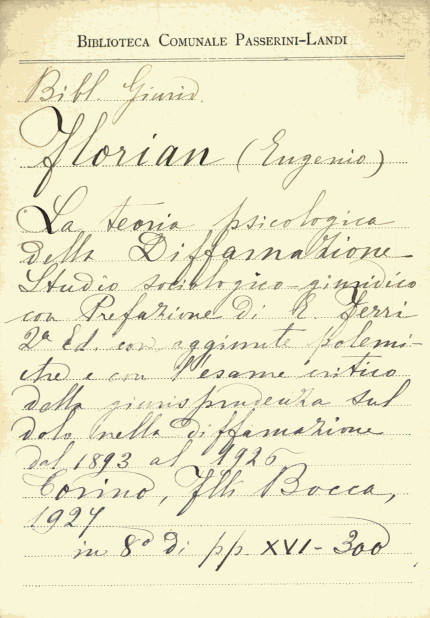 BIBLIOTECA COMUNALE PASSERINI-LANDI
Bibl. Giurid.
Florian (Eugenio)
La teoria psicologica
della Diffamazione
Studio sociologico-giuridico
con Prefazione di E. Ferri
2ª Ed. con aggiunte polemi-
che e con l'esame critico
della giurisprudenza sul
dolo nella diffamazione
dal 1893 al 1925
Torino, Flli Bocca,
1927
in 8º di pp. XVI-300